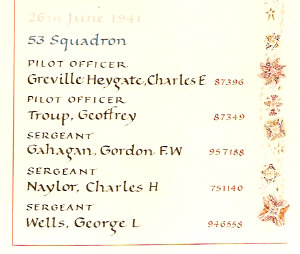 26TH June 1941
53 Squadron
PILOT OFFICER
Greville Heygate, Charles E 87396
PILOT OFFICER
Troup, Geoffrey 87349
SERGEANT
Gahagan, Gordon F.W 957188
SERGEANT
Naylor, Charles H 751140
SERGEANT
Wells, George L 946558